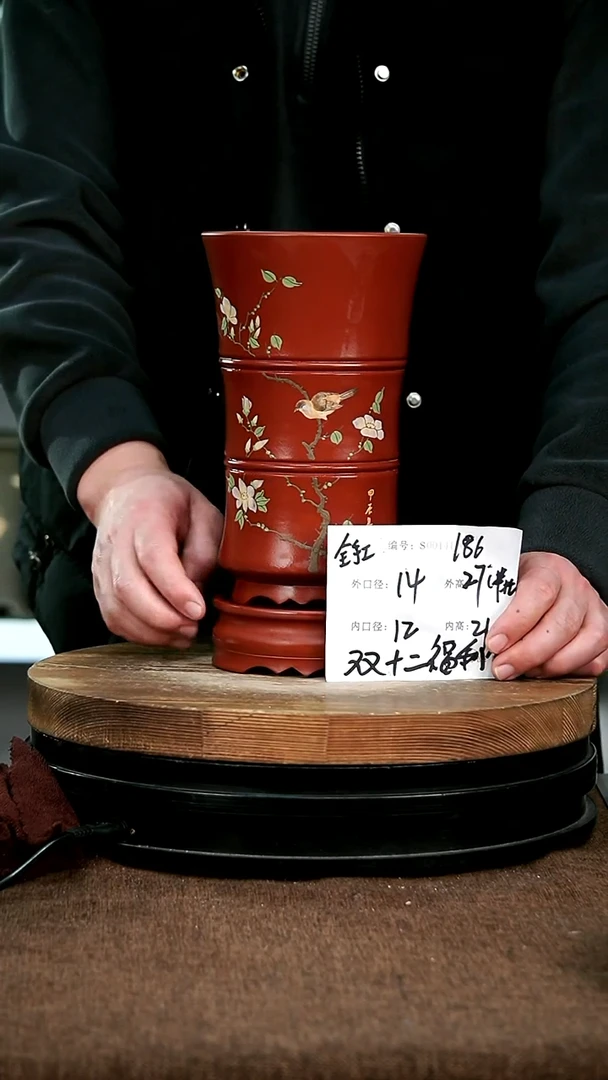 全红 编号: S0011 186
外口径: 14 外高 27 (带托
内口径: 12 内高: 21
双十二福利
甲辰